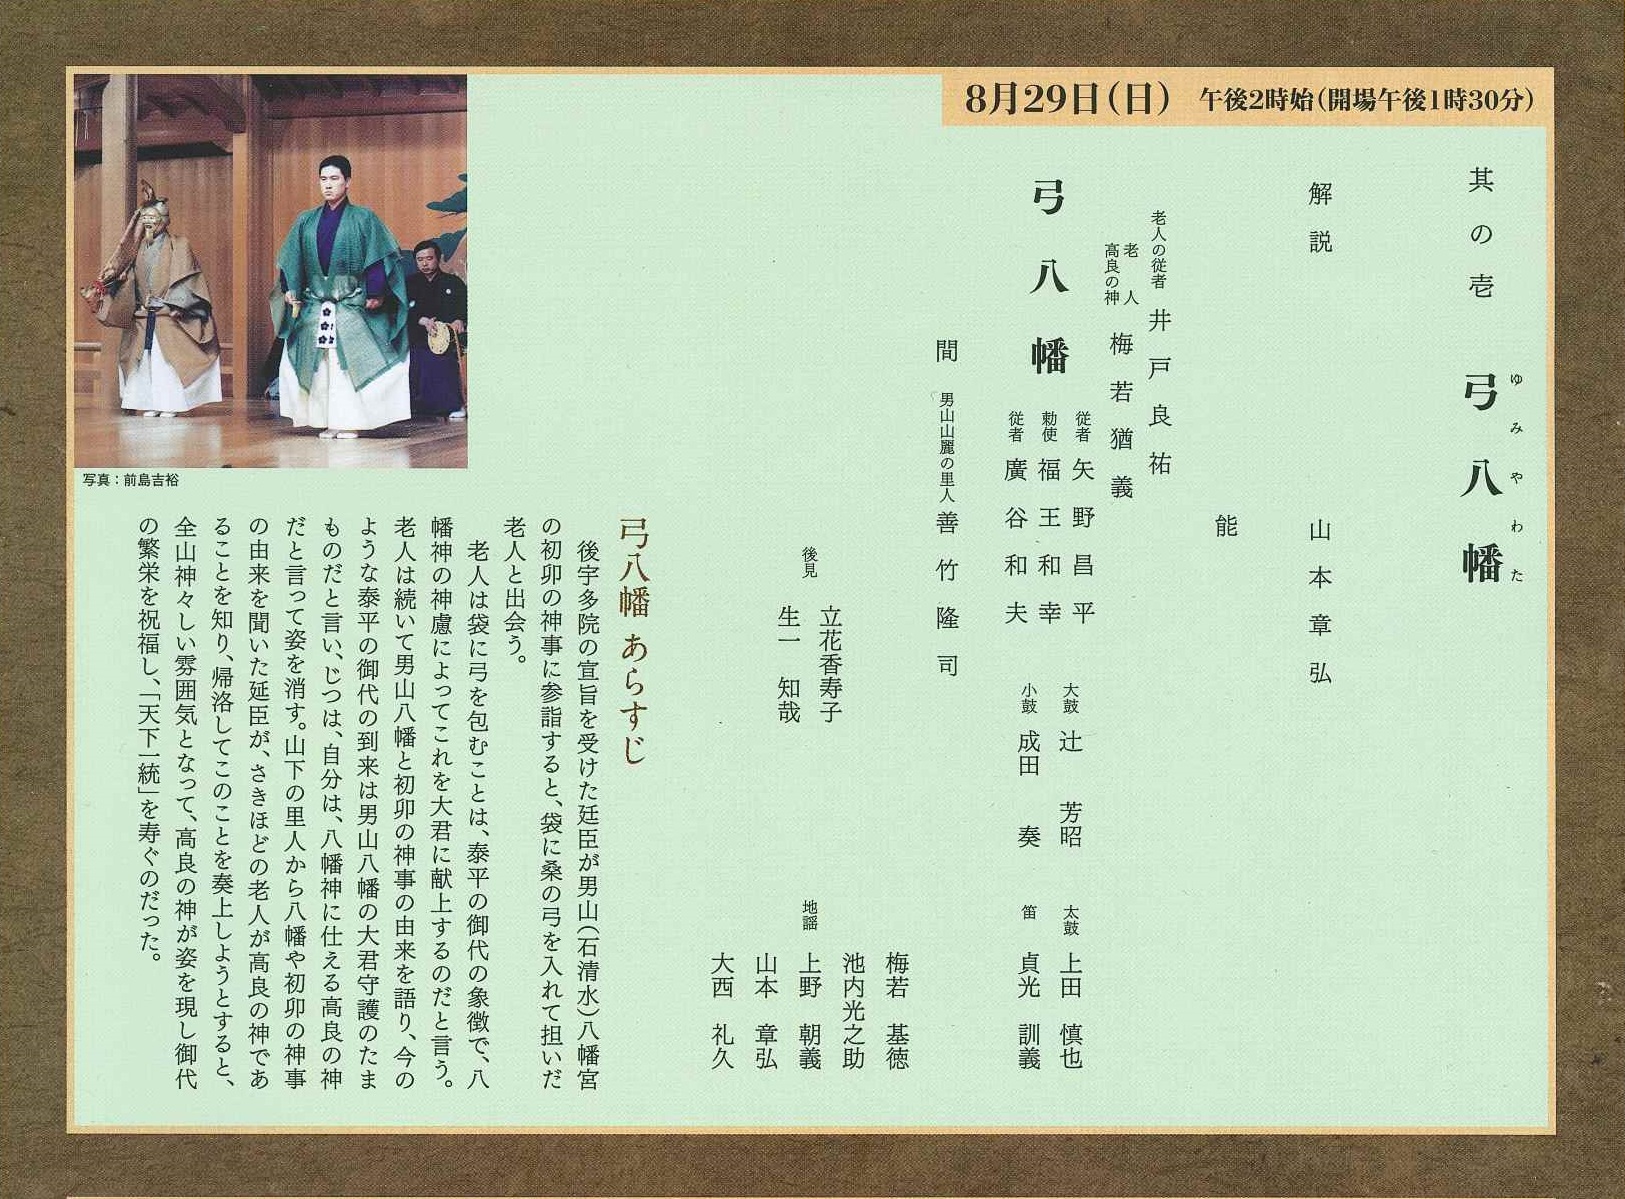 8月29日(日) 午後2時始(開場午後1時30分)
其の壱 弓八幡
ゆみやわた
解説 山本章弘
能
老人の従者 井戸良祐
老人
高良の神 梅若猶義
弓八幡
従者 矢野昌平
勅使 福王和幸
従者 廣谷和夫
大鼓 辻 芳昭
小鼓 成田 奏
太鼓 上田 慎也
笛 貞光 訓義
間 男山山麓の里人 善竹隆司
後見 立花香寿子
生一 知哉
地謡 梅若 基徳
池内光之助
上野 朝義
山本 章弘
大西 礼久
弓八幡 あらすじ
後宇多院の宣旨を受けた廷臣が男山(石清水)八幡宮
の初卯の神事に参詣すると、袋に桑の弓を入れて担いだ
老人と出会う。
老人は袋に弓を包むことは、泰平の御代の象徴で、八
幡神の神慮によってこれを大君に献上するのだと言う。
老人は続いて男山八幡と初卯の神事の由来を語り、今の
ような泰平の御代の到来は男山八幡の大君守護のたま
ものだと言い、じつは、自分は、八幡神に仕える高良の神
だと言って姿を消す。山下の里人から八幡や初卯の神事
の由来を聞いた延臣が、さきほどの老人が高良の神であ
ることを知り、帰洛してこのことを奏上しようとすると、
全山神々しい雰囲気となって、高良の神が姿を現し御代
の繁栄を祝福し、「天下一統」を寿ぐのだった。
写真：前島吉裕